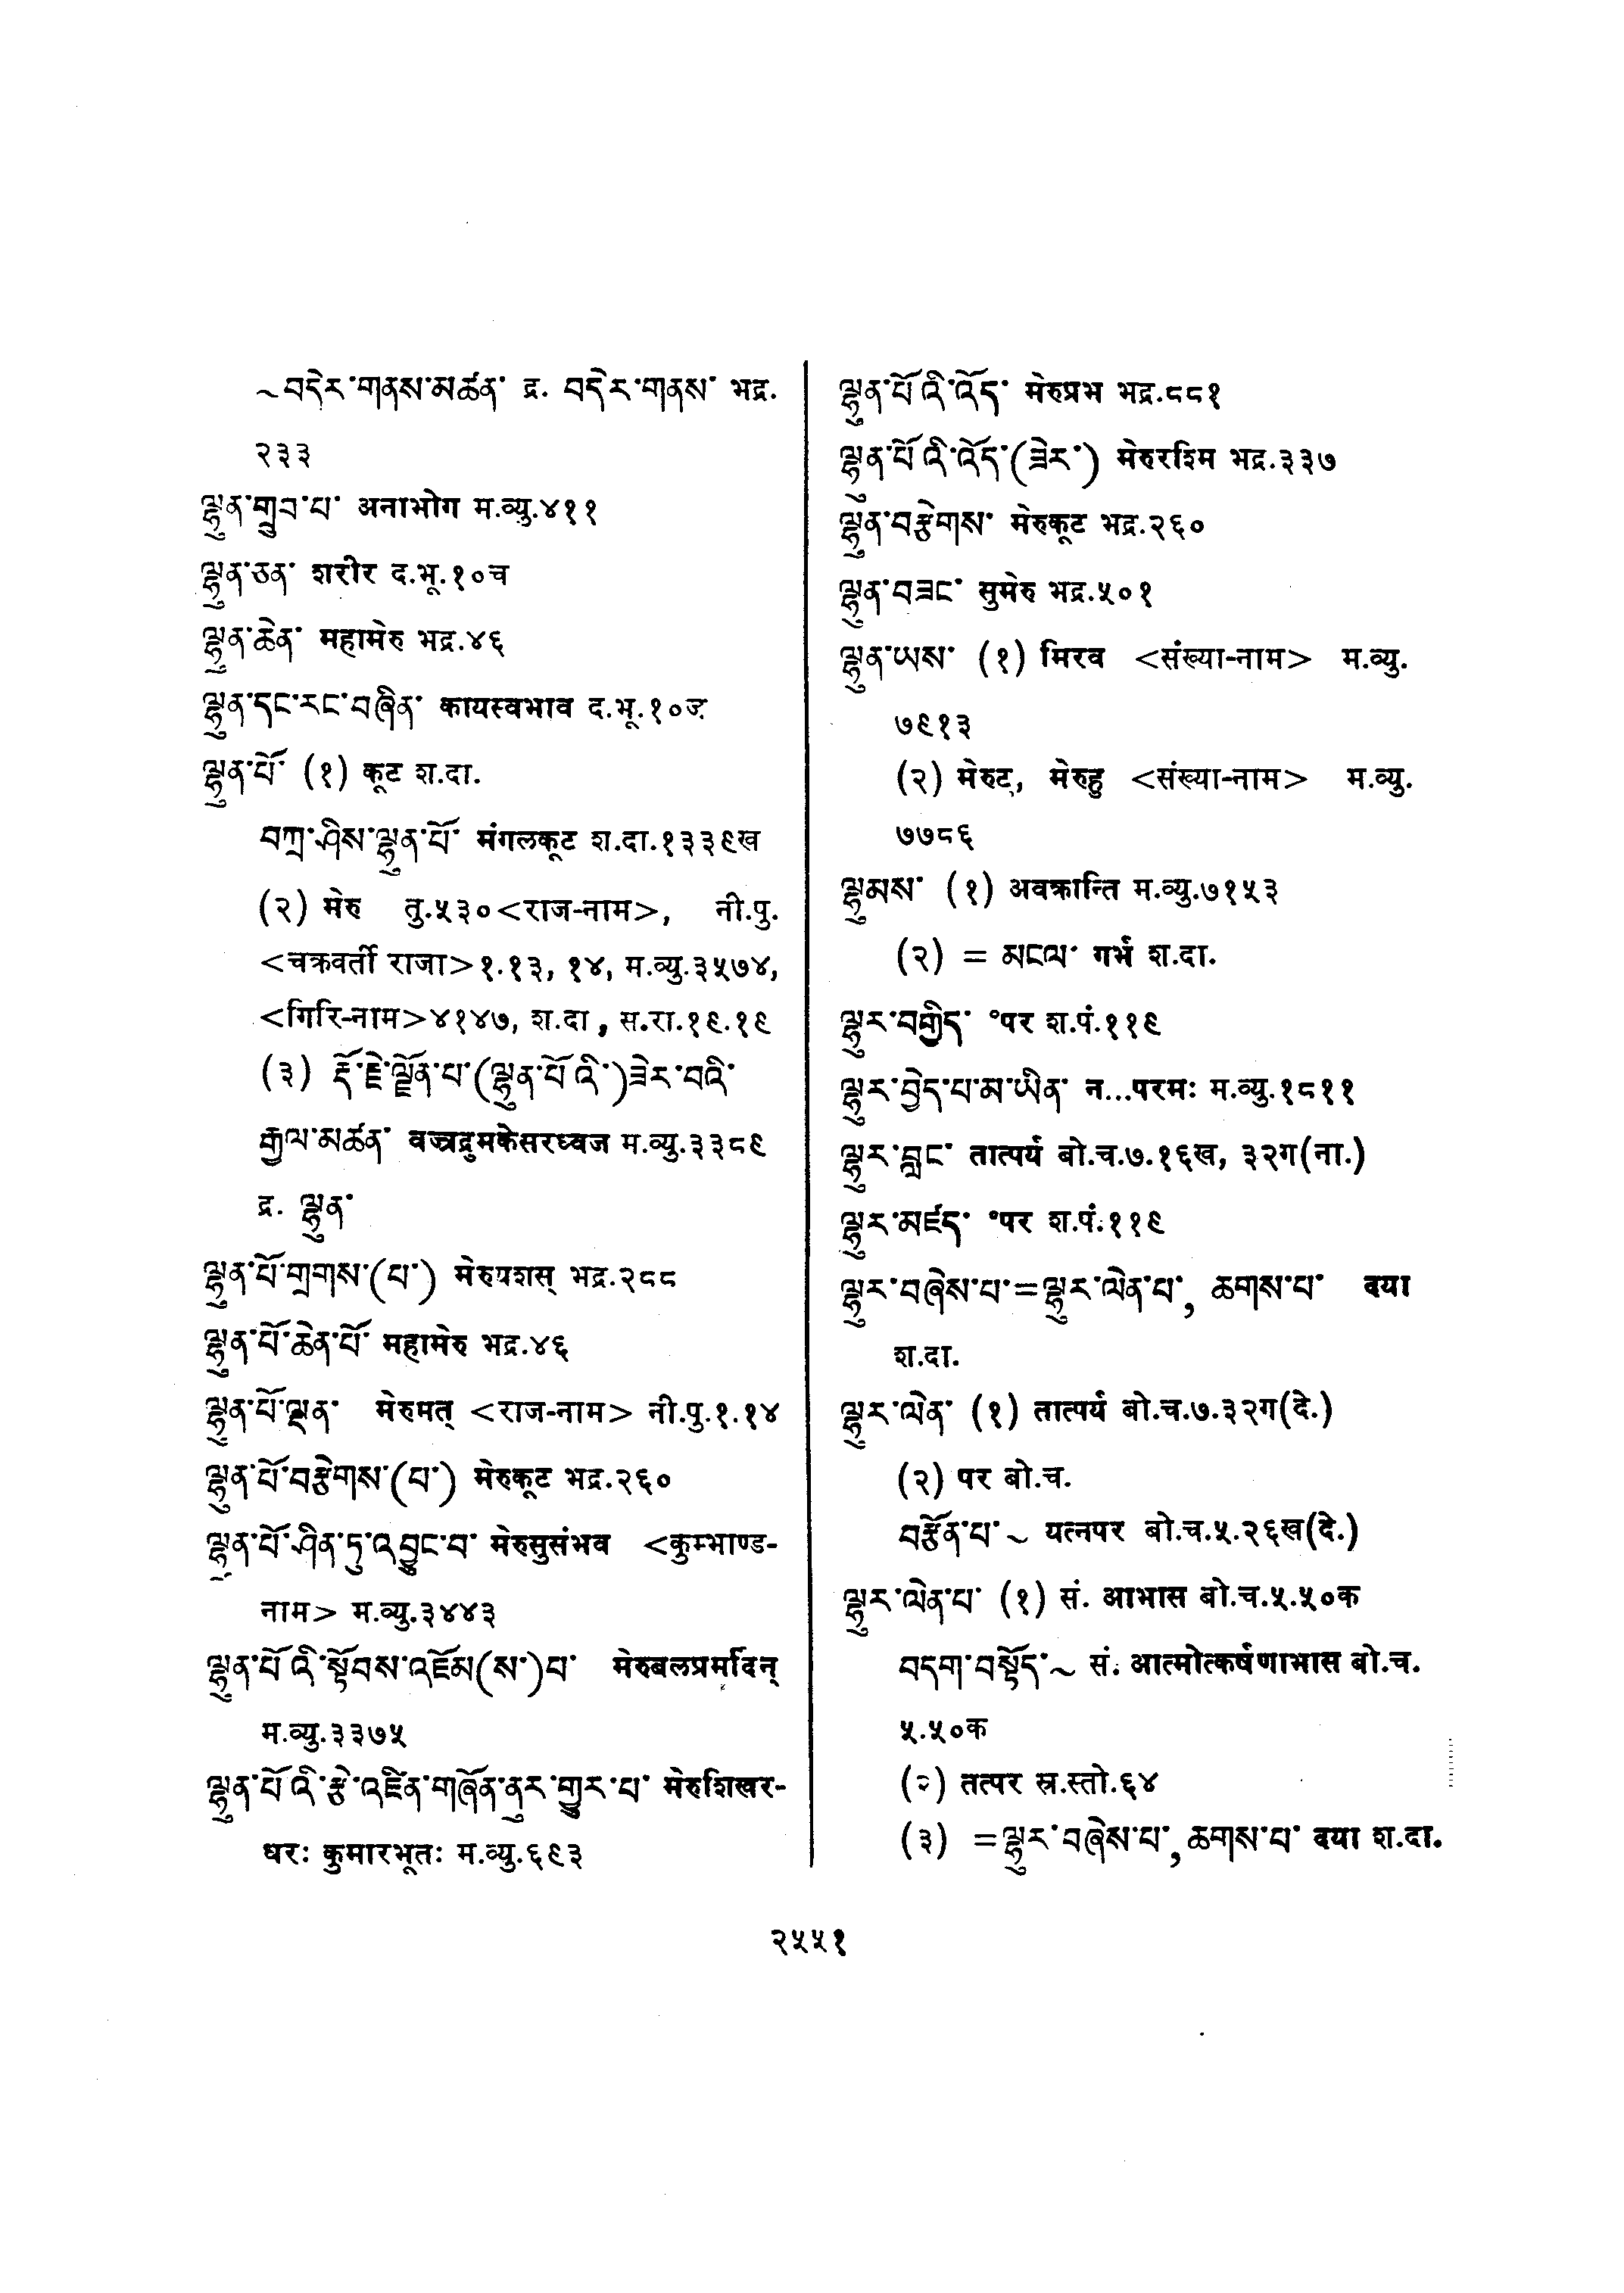 ~བདེར་གནས་མཚན་ द्र. བདེར་གནས་ भद्र.
२३३
ལྷུན་གྲུབ་པ་ अनाभोग म.व्यु.४११
ལྷུན་ཅན་ शरीर द.भू.१०च
ལྷུན་ཆེན་ महामेरु भद्र.४६
ལྷུན་དང་རང་བཞིན་ कायस्वभाव द.भू.१०ज
ལྷུན་པོ་ (१) कूट श.दा.
བཀྲ་ཤིས་ལྷུན་པོ་ मंगलकूट श.दा.१३३९ख
(२) मेरु तु.५३०<राज-नाम>, नी.पु.
<चक्रवर्ती राजा>१.१३, १४, म.व्यु.३५७४,
<गिरि-नाम>४१४७, श.दा, स.रा.१९.१९
(३) རྡོ་རྗེ་ལྗོན་པ་(ལྷུན་པོ་འི་)ཟེར་བའི་
རྒྱལ་མཚན་ वज्रद्रुमकेसरध्वज म.व्यु.३३८९
द्र. ལྷུན་
ལྷུན་པོ་གྲགས་(པ་) मेरुयशस् भद्र.२८८
ལྷུན་པོ་ཆེན་པོ་ महामेरु भद्र.४६
ལྷུན་པོ་ལྡན་ मेरुमत् <राज-नाम> नी.पु.१.१४
ལྷུན་པོ་བརྩེགས་(པ་) मेरुकूट भद्र.२६०
ལྷུན་པོ་ཤིན་ཏུ་འབྱུང་བ་ मेरुसुसंभव <कुम्भाण्ड-
नाम> म.व्यु.३४४३
ལྷུན་པོ་འི་སྟོབས་འཇོམ(ས་)པ་ मेरुबलप्रमर्दिन्
म.व्यु.३३७५
ལྷུན་པོ་འི་རྩེ་འཛིན་གཞོན་ནུར་གྱུར་པ་ मेरुशिखर-
धरः कुमारभूतः म.व्यु.६९३
ལྷུན་པོ་འི་འོད་ मेरुप्रभ भद्र.८८१
ལྷུན་པོ་འི་འོད་(ཟེར་) मेरुरश्मि भद्र.३३७
ལྷུན་བརྩེགས་ मेरुकूट भद्र.२६०
ལྷུན་བཟང་ सुमेरु भद्र.५०१
ལྷུན་ཡས་ (१) मिरव <संख्या-नाम> म.व्यु.
७९१३
(२) मेरुट, मेरुहु <संख्या-नाम> म.व्यु.
७७८६
ལྷུམས་ (१) अवक्रान्ति म.व्यु.७१५३
(२) = མངལ་ गर्भ श.दा.
ལྷུར་བགྱིད་ °पर श.पं.११९
ལྷུར་བྱེད་པ་མ་ཡིན་ न...परमः म.व्यु.१८११
ལྷུར་བླང་ तात्पर्य बो.च.७.१६ख, ३२ग(ना.)
ལྷུར་མཛད་ °पर श.पं.११९
ལྷུར་བཞེས་པ་=ལྷུར་ལེན་པ་, ཆགས་པ་ दया
श.दा.
ལྷུར་ལེན་ (१) तात्पर्य बो.च.७.३२ग(दे.)
(२) पर बो.च.
བརྩོན་པ་ ~ यत्नपर बो.च.५.२६ख(दे.)
ལྷུར་ལེན་པ་ (१) सं. आभास बो.च.५.५०क
བདག་བསྟོད་ ~ सं. आत्मोत्कर्षणाभास बो.च.
५.५०क
(२) तत्पर स्र.स्तो.६४
(३) =ལྷུར་བཞེས་པ་, ཆགས་པ་ दया श.दा.
२५५१